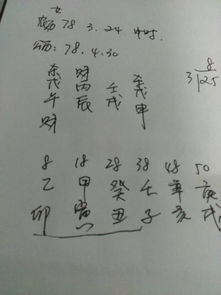 女
78. 3. 24 申时.
78. 4. 30
戊午 财
财 丙辰
壬戌
戊申
8
3 25
8 18 28 38 48 50
乙 甲 癸 壬 辛 庚
卯 寅 丑 子 亥 戌